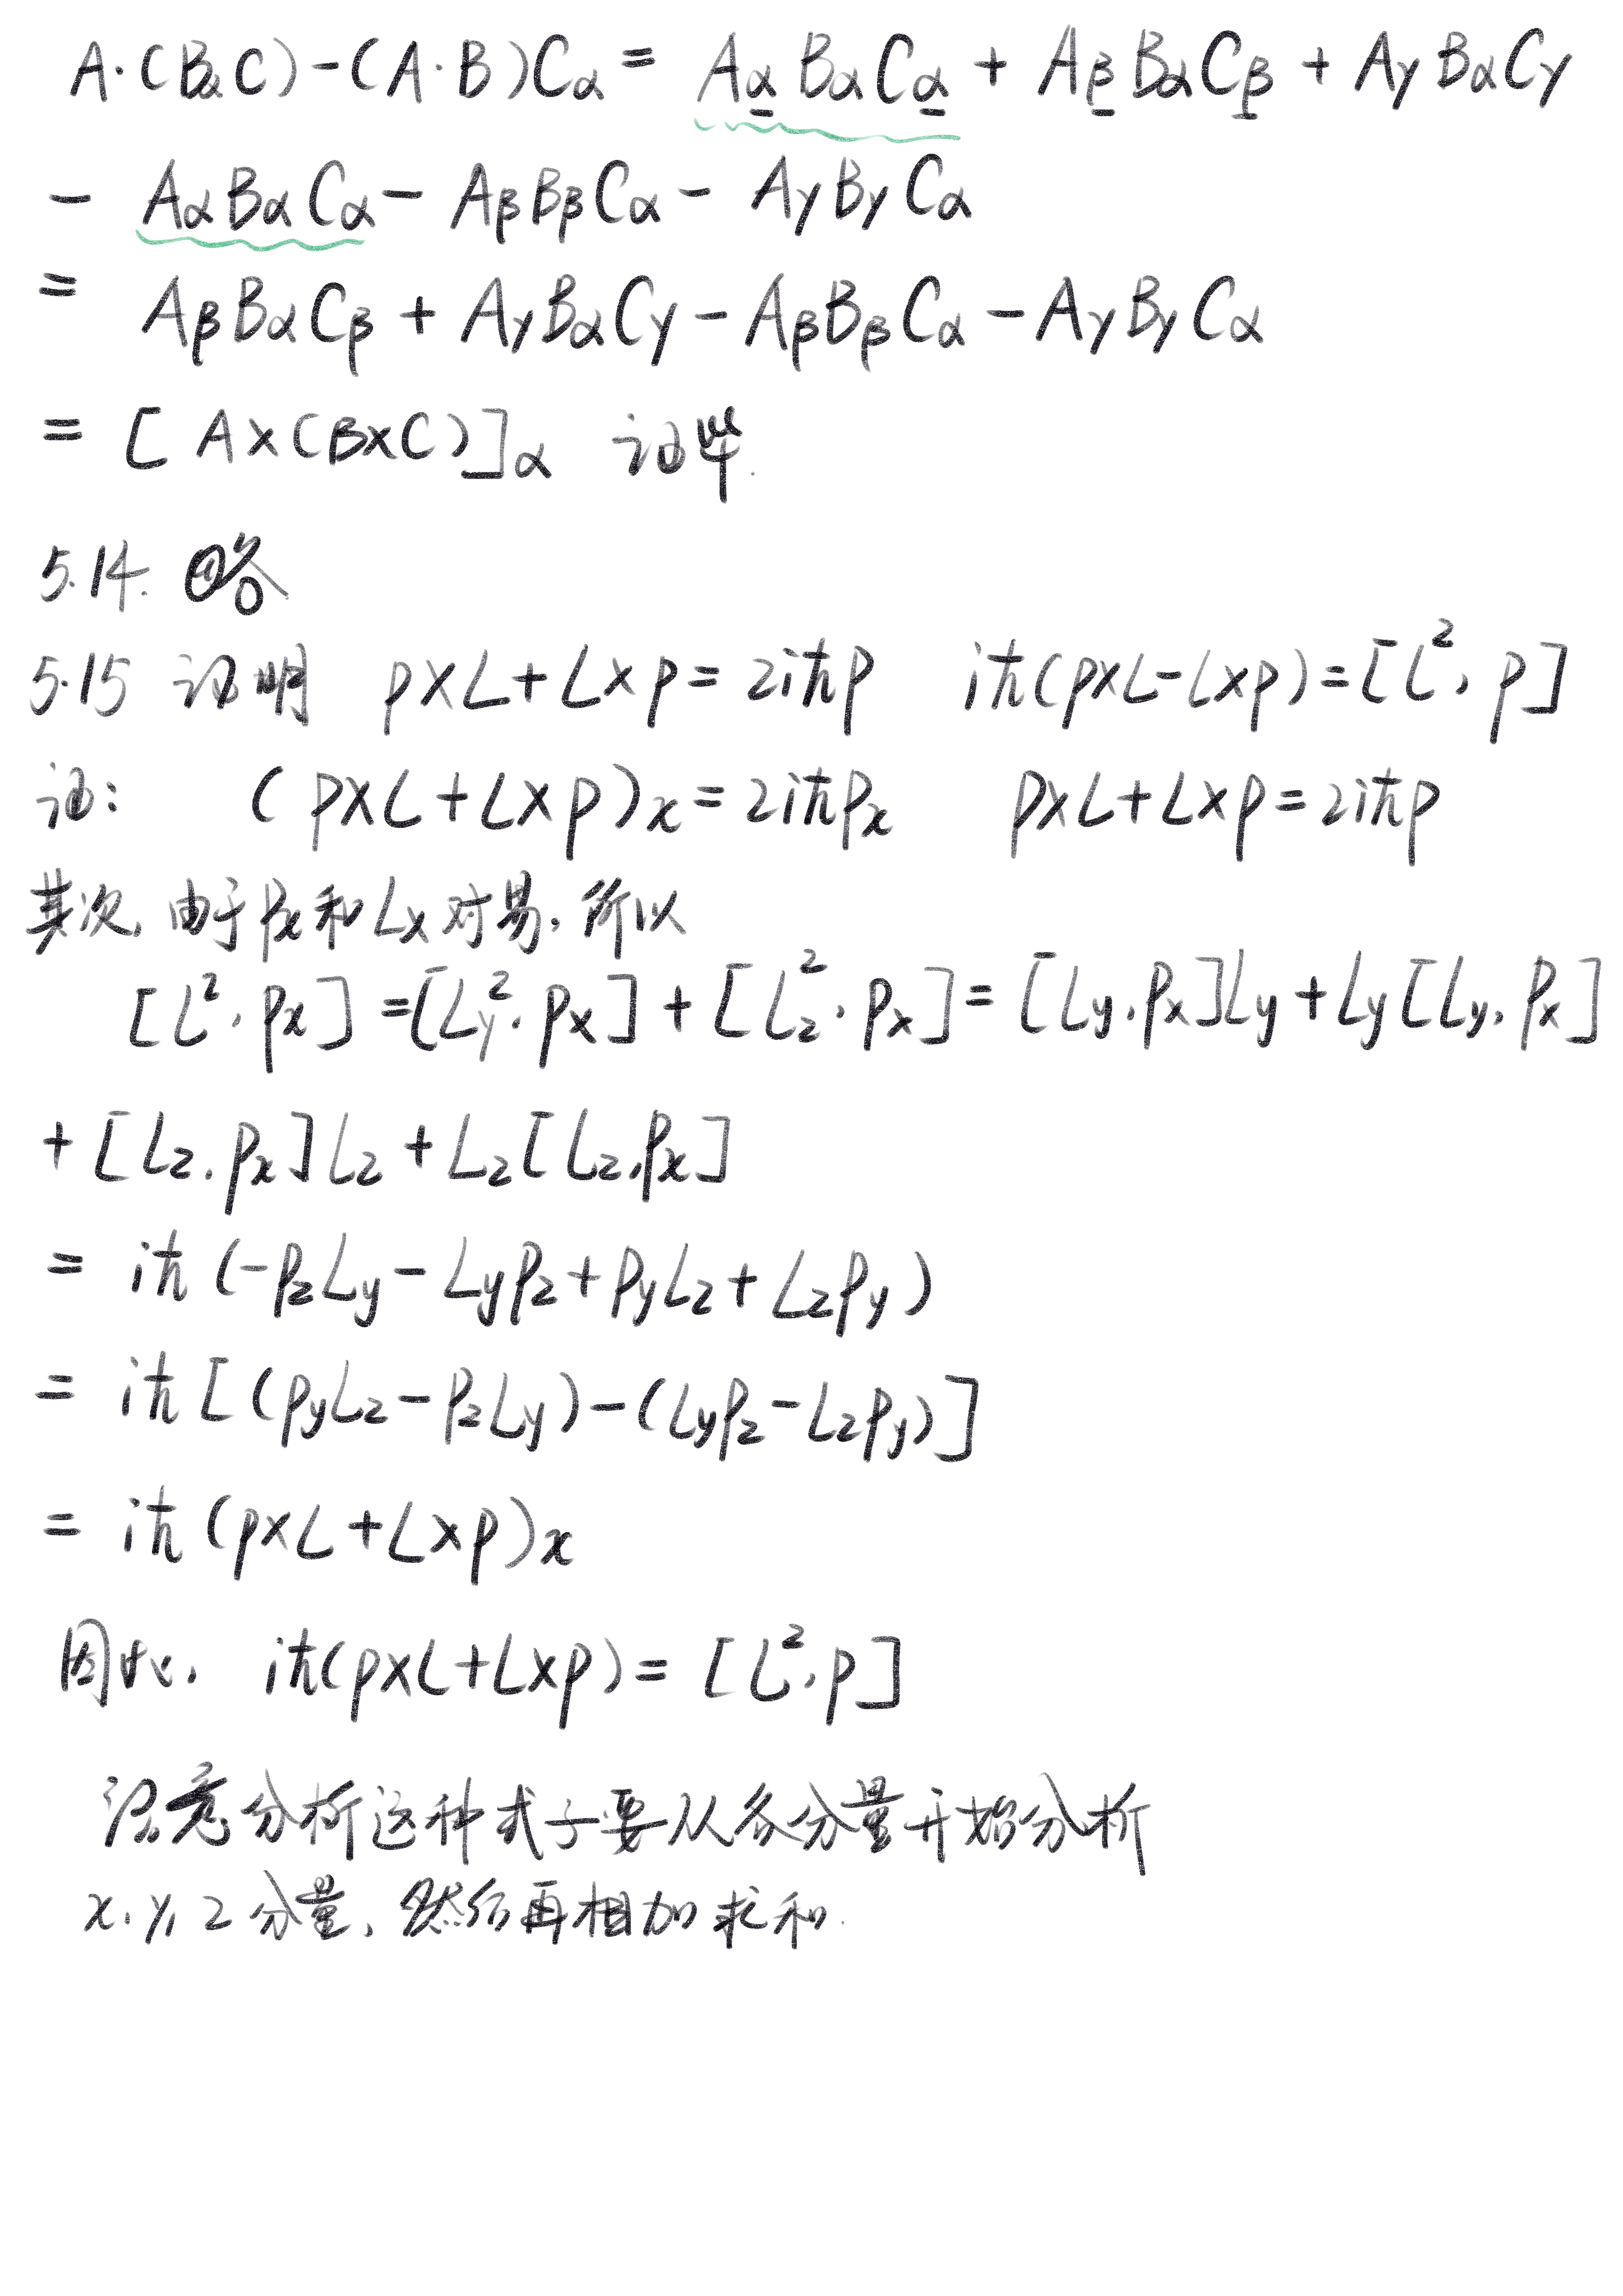 A·(BαC)-(A·B)Cα = AαBαCα + AβBαCβ + AγBαCγ
- AαBαCα - AβBβCα - AγBγCα
= AβBαCβ + AγBαCγ - AβBβCα - AγBγCα
= [A×(B×C)]α 证毕.
5.14. 略
5.15 证明 p×L+L×p=2iħp iħ(p×L-L×p)=[L², p]
证: (p×L+L×p)x=2iħpx p×L+L×p=2iħp
其次, 由于px和Lx对易, 所以
[L², px] =[Ly², px]+[Lz², px]=[Ly,px]Ly+Ly[Ly,px]
+[Lz,px]Lz+Lz[Lz,px]
= iħ(-pzLy-Lypz+pyLz+Lzpy)
= iħ[(pyLz-pzLy)-(Lypz-Lzpy)]
= iħ(p×L+L×p)x
因此, iħ(p×L+L×p)=[L²,p]
注意分析这种式子要从各分量开始分析
x, y, z分量, 然后再相加求和.